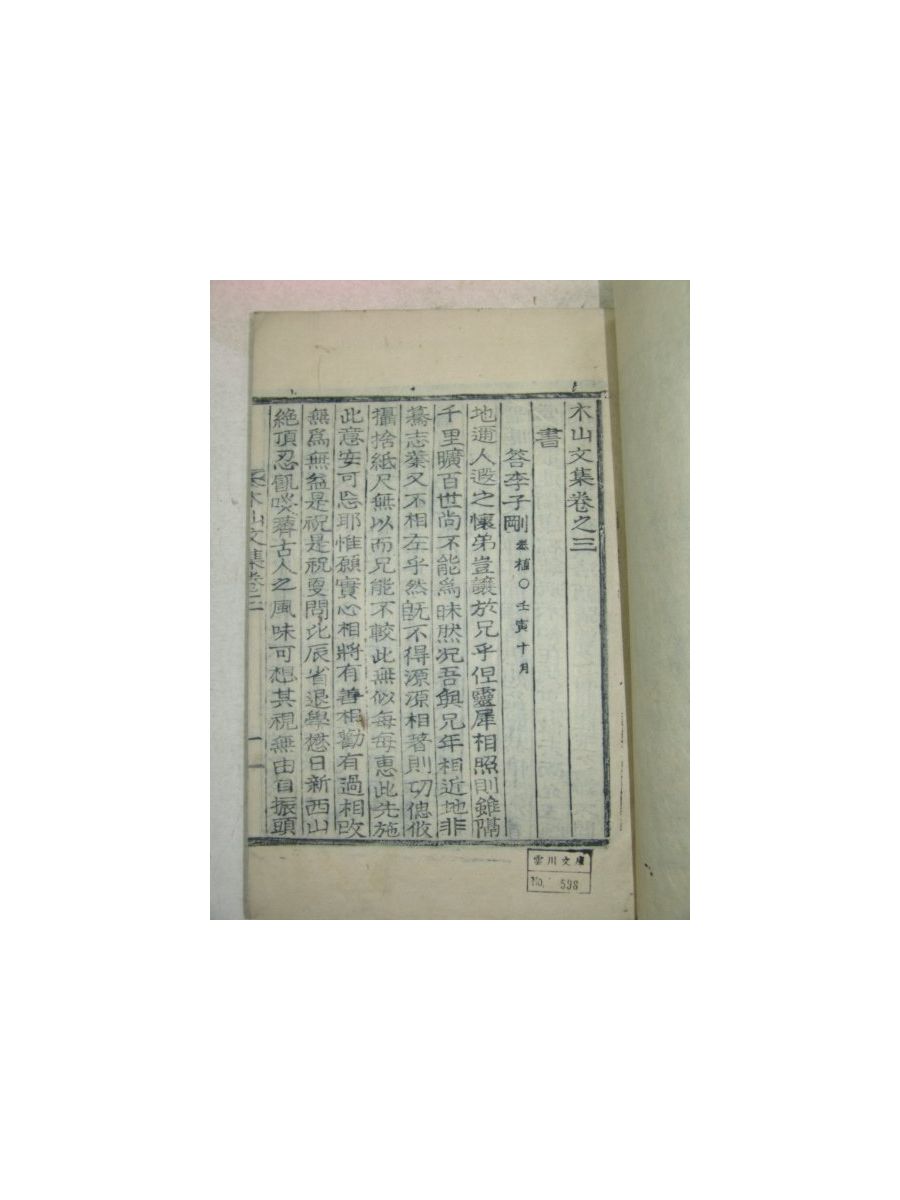 木山文集卷之三
書
答李子剛 泰植○壬寅十月
地邇人遐之懷弟豈讓放兄乎但靈犀相照則雖隔
千里曠百世尚不能爲昧然况吾與兄年相近地非
驀志業又不相左乎然旣不得源源相著則切偲攸
攝捨紙尺無以而兄能不較此無似每每惠此先施
此意安可忘耶惟願實心相將有善相勸有過相改
無爲無益是祝是祝更問比辰省退學懋日新西山
絶頂忍飢啖薺古人之風味可想其視無由自振頭
木山文集卷三
一
雲川文庫
No. 598